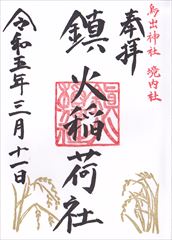 鳥出神社 境内社
奉拝
鎮火稲荷社
令和五年三月十一日